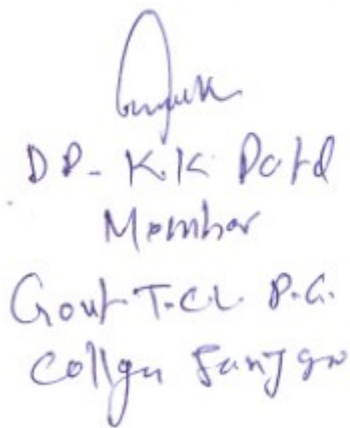 DR- K.K. Patel
Member
Gout T.C.L. P.G.
College Janjgir